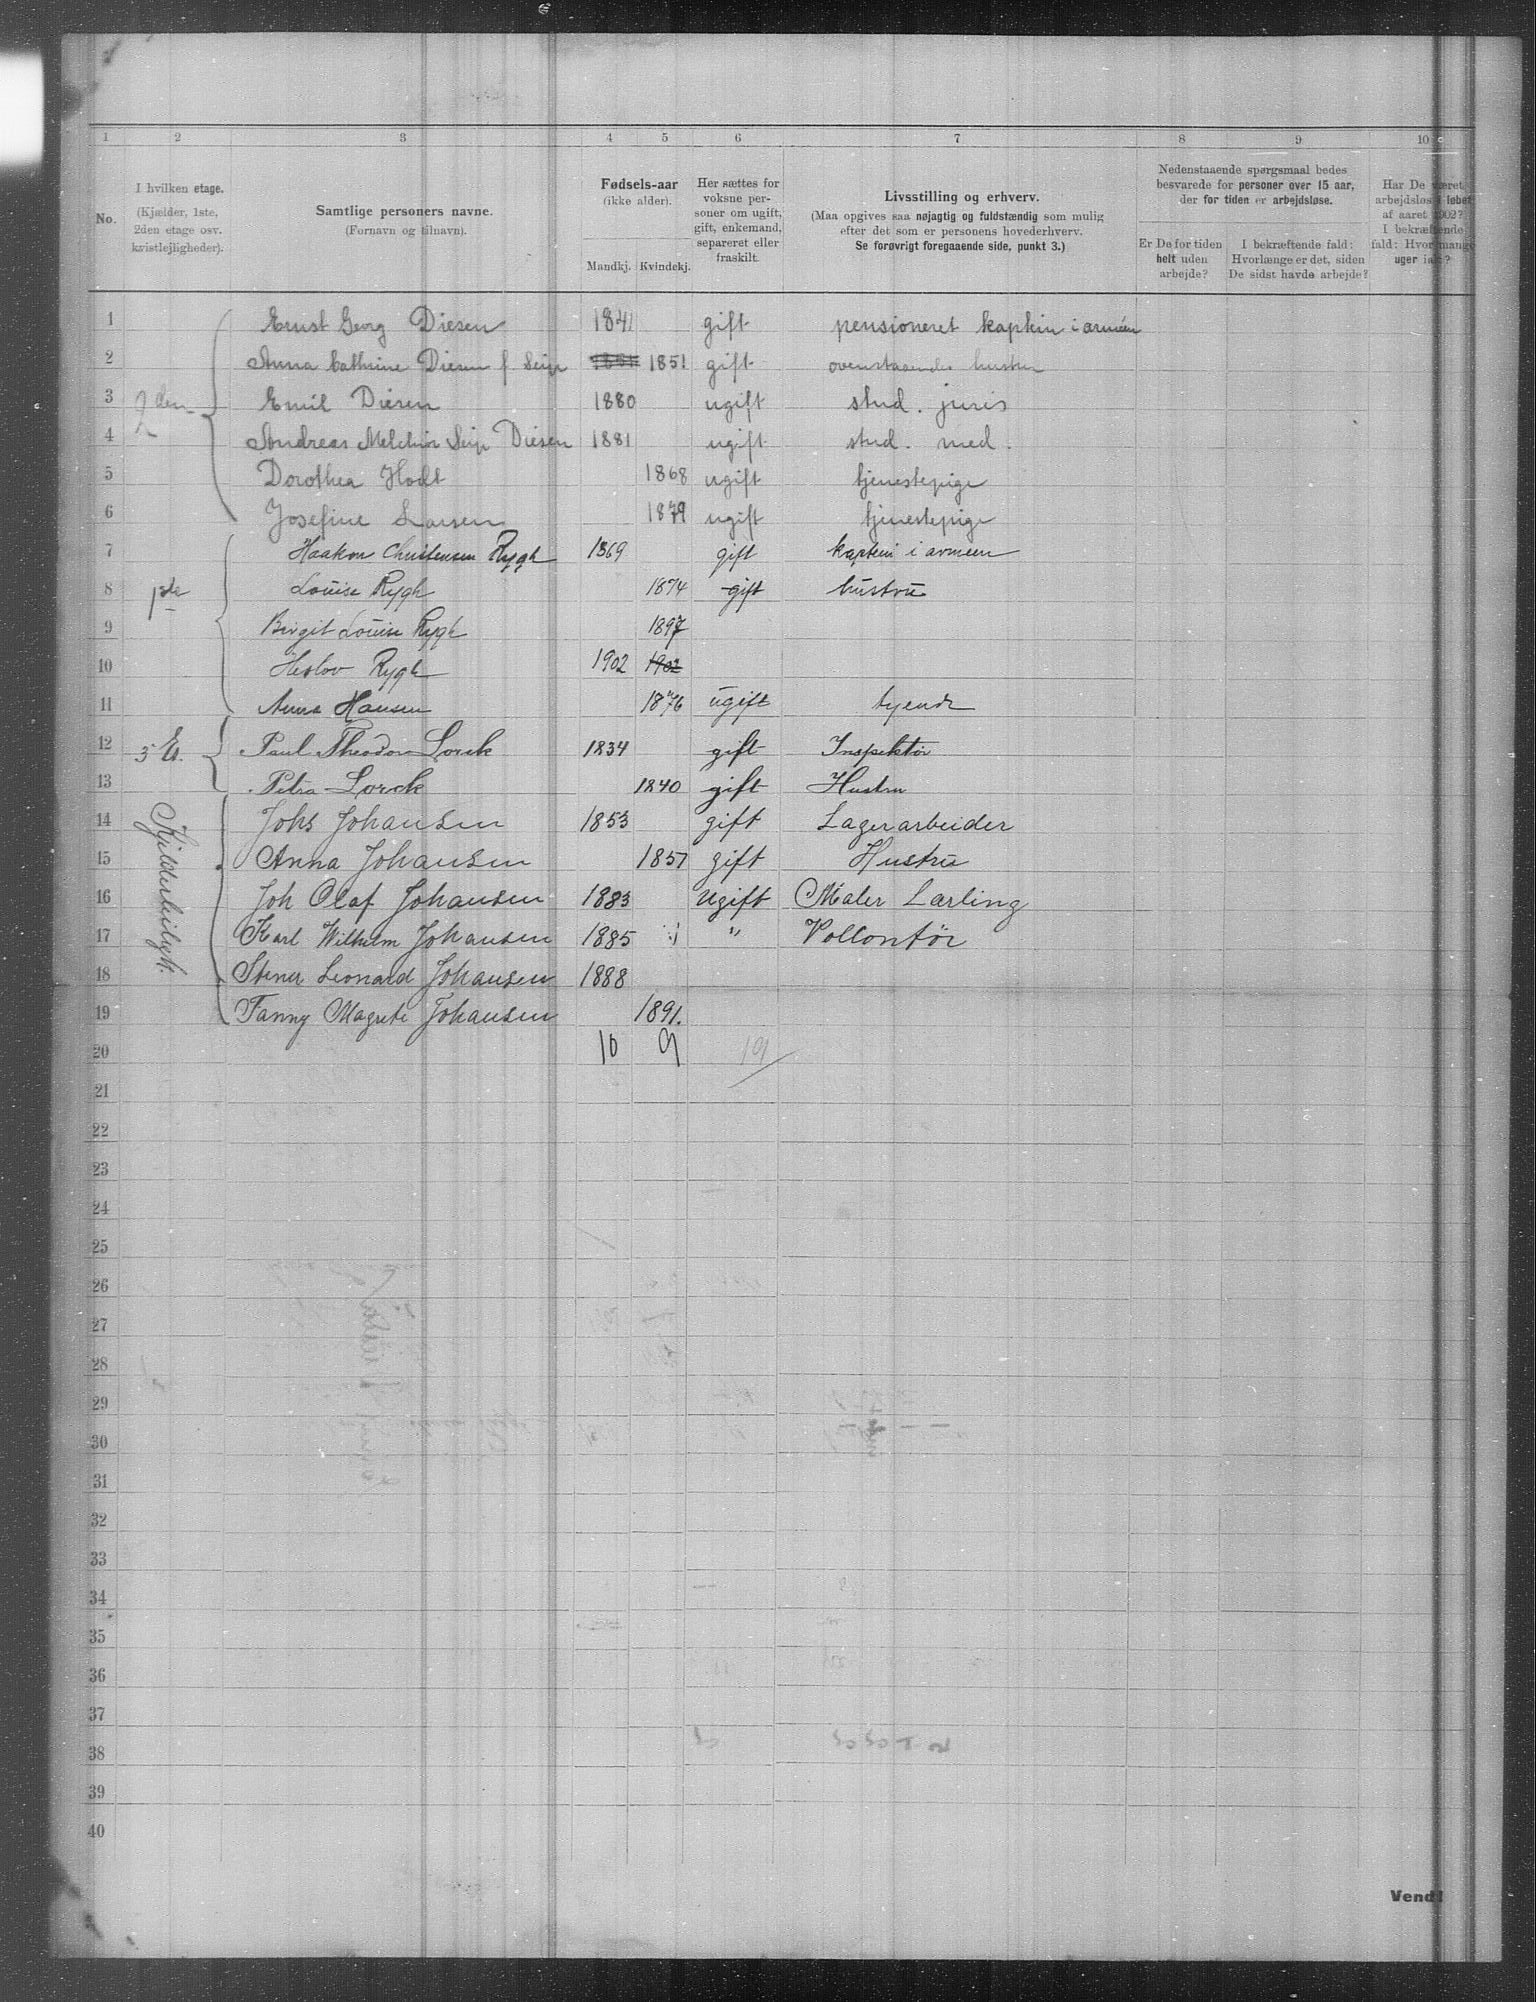 1 2 3 4 5 6 7 8 9 10
No.
I hvilken etage.
(Kjælder, 1ste,
2den etage osv.
kvistlejligheder).
Samtlige personers navne.
(Fornavn og tilnavn).
Fødsels-aar
(ikke alder).
Mandkj. Kvindekj.
Her sættes for
voksne per-
soner om ugift,
gift, enkemand,
separeret eller
fraskilt.
Livsstilling og erhverv.
(Maa opgives saa nøjagtig og fuldstændig som mulig
efter det som er personens hovederhverv.
Se forøvrigt foregaaende side, punkt 3.)
Nedenstaaende spørgsmaal bedes
besvarede for personer over 15 aar,
der for tiden er arbejdsløse.
Er De for tiden
helt uden
arbejde?
I bekræftende fald:
Hvorlænge er det, siden
De sidst havde arbejde?
Har De været
arbejdsløs i løbet
af aaret 1902?
I bekræftende
fald: Hvor mange
uger ialt?
1 Ernst Georg Diesen 1841 gift pensioneret kaptein i arméen
2 Anna Cathrine Diesen f. Seip 1851 1851 gift ovenstaaendes hustru
3 2den Emil Diesen 1880 ugift stud. juris
4 Andreas Melchior Seip Diesen 1881 ugift stud. med.
5 Dorothea Hodt 1868 ugift tjenestepige
6 Josefine Larsen 1879 ugift tjenestepige
7 Haakon Christensen Rygh 1869 gift kaptein i armeen
8 1ste Louise Rygh 1874 gift hustru
9 Birgit Louise Rygh 1897
10 Heslov Rygh 1902 1902
11 Anna Hansen 1876 ugift tyende
12 3 Et. Paul Theodor Lorck 1834 gift Inspektør
13 Petra Lorck 1840 gift Hustru
14 Johs Johansen 1853 gift Lagerarbeider
15 Anna Johansen 1857 gift Hustru
16 Joh Olaf Johansen 1883 Ugift Maler Lærling
17 Karl Wilhelm Johansen 1885 " Vollontør
18 Stener Leonard Johansen 1888
19 Fanny Magrete Johansen 1891.
20 10 9 19
21
22
23
24
25
26
27
28
29
30
31
32
33
34
35
36
37
38
39
40
Vend!